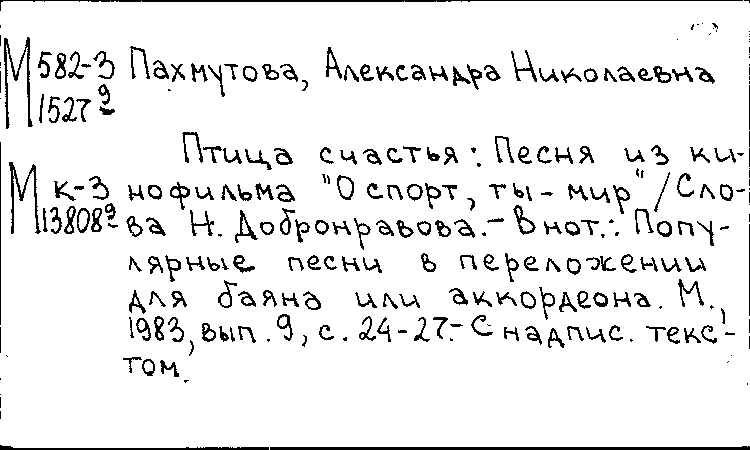 М 582-3 Пахмутова, Александра Николаевна
1527 9
Птица счастья: Песня из ки-
М к-3 нофильма "О спорт, ты - мир" / Сло-
13808 9 ва Н. Добронравова. - В нот.: Попу-
лярные песни в переложении
для баяна или аккордеона. М.,
1983, вып. 9, с. 24-27. - С надпис. текс-
том.